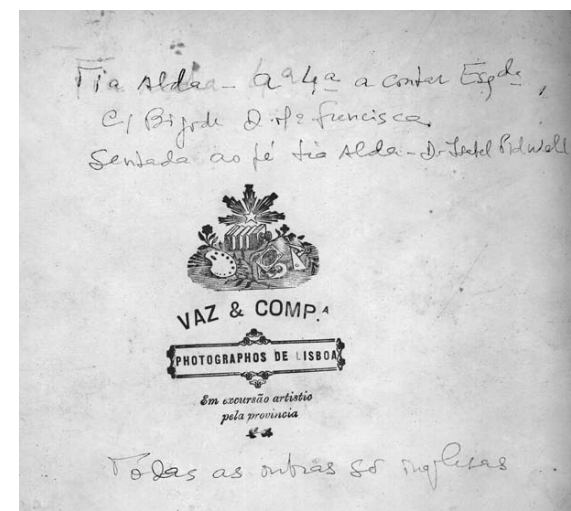 Tia Alda - a 4ª a contar Esqda,
C/ Bigode D. Mª Francisca
Sentada ao pé tia Alda - D. Isabel Bidwell
VAZ & COMP.ª
PHOTOGRAPHOS DE LISBOA
Em excursão artistio
pela provincia
Todas as outras só inglesas